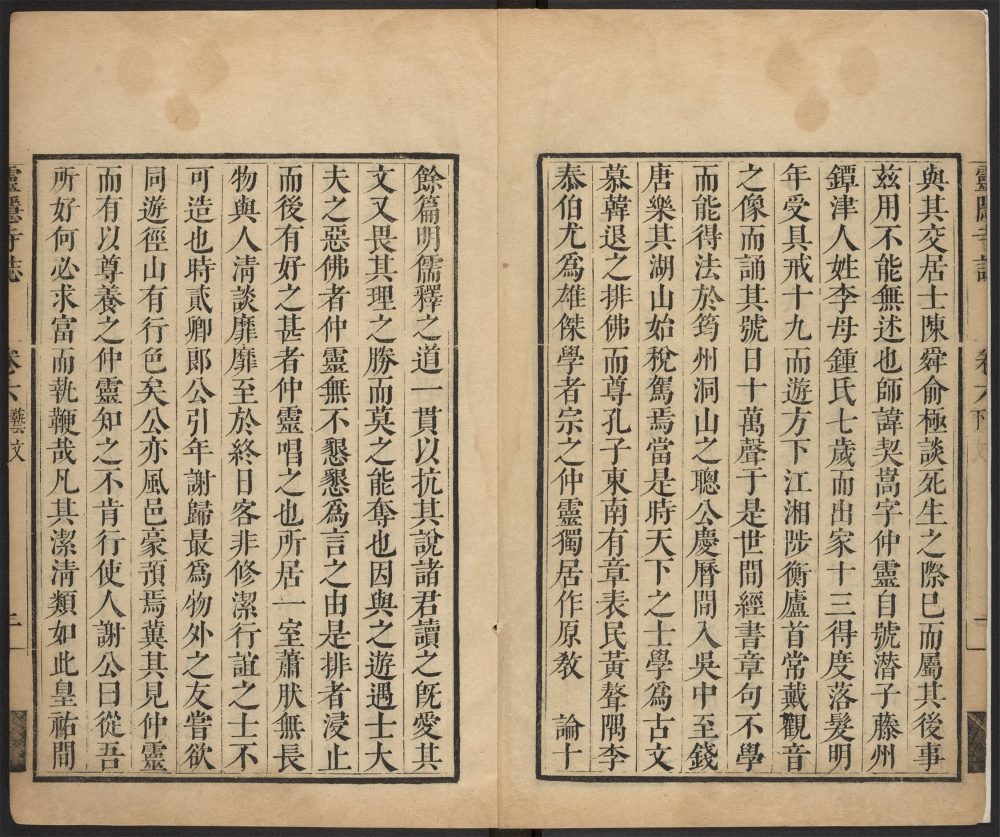 與其交居士陳舜俞極談死生之際已而屬其後事
兹用不能無述也師諱契嵩字仲靈自號潜子藤州
鐔津人姓李母鍾氏七歲而出家十三得度落髮明
年受具戒十九而遊方下江湘陟衡廬首常戴觀音
之像而誦其號日十萬聲于是世間經書章句不學
而能得法於筠州洞山之聰公慶曆間入吳中至錢
唐樂其湖山始稅駕焉當是時天下之士學為古文
慕韓退之排佛而尊孔子東南有章表民黃聱隅李
泰伯尤為雄傑學者宗之仲靈獨居作原敎　論十
餘篇明儒釋之道一貫以抗其說諸君讀之旣愛其
文又畏其理之勝而莫之能奪也因與之遊遇士大
夫之惡佛者仲靈無不懇懇為言之由是排者浸止
而後有好之甚者仲靈唱之也所居一室蕭肰無長
物與人淸談靡靡至於終日客非修潔行誼之士不
可造也時貳卿郎公引年謝歸最為物外之友嘗欲
同遊徑山有行色矣公亦風邑豪預焉冀其見仲靈
而有以尊養之仲靈知之不肯行使人謝公曰從吾
所好何必求富而執鞭哉凡其潔淸類如此皇祐間
靈隱寺誌　卷六　藝文